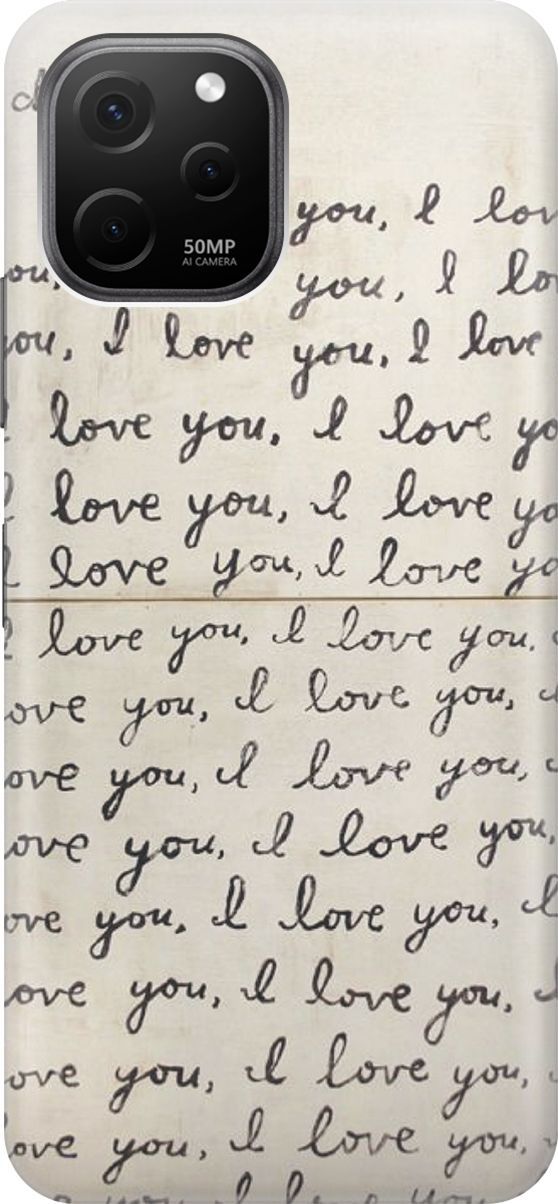 50MP
AI CAMERA
you, I lov
ou, you, I lo
you, I love you, I love
I love you, I love yo
I love you, I love yo
I love you, I love yo
I love you, I love you,
ove you, I love you, I
ove you, I love you,
ove you, I love you,
ove you, I love you, I
ove you, I love you, I
ove you, I love you,
ove you, I love you,